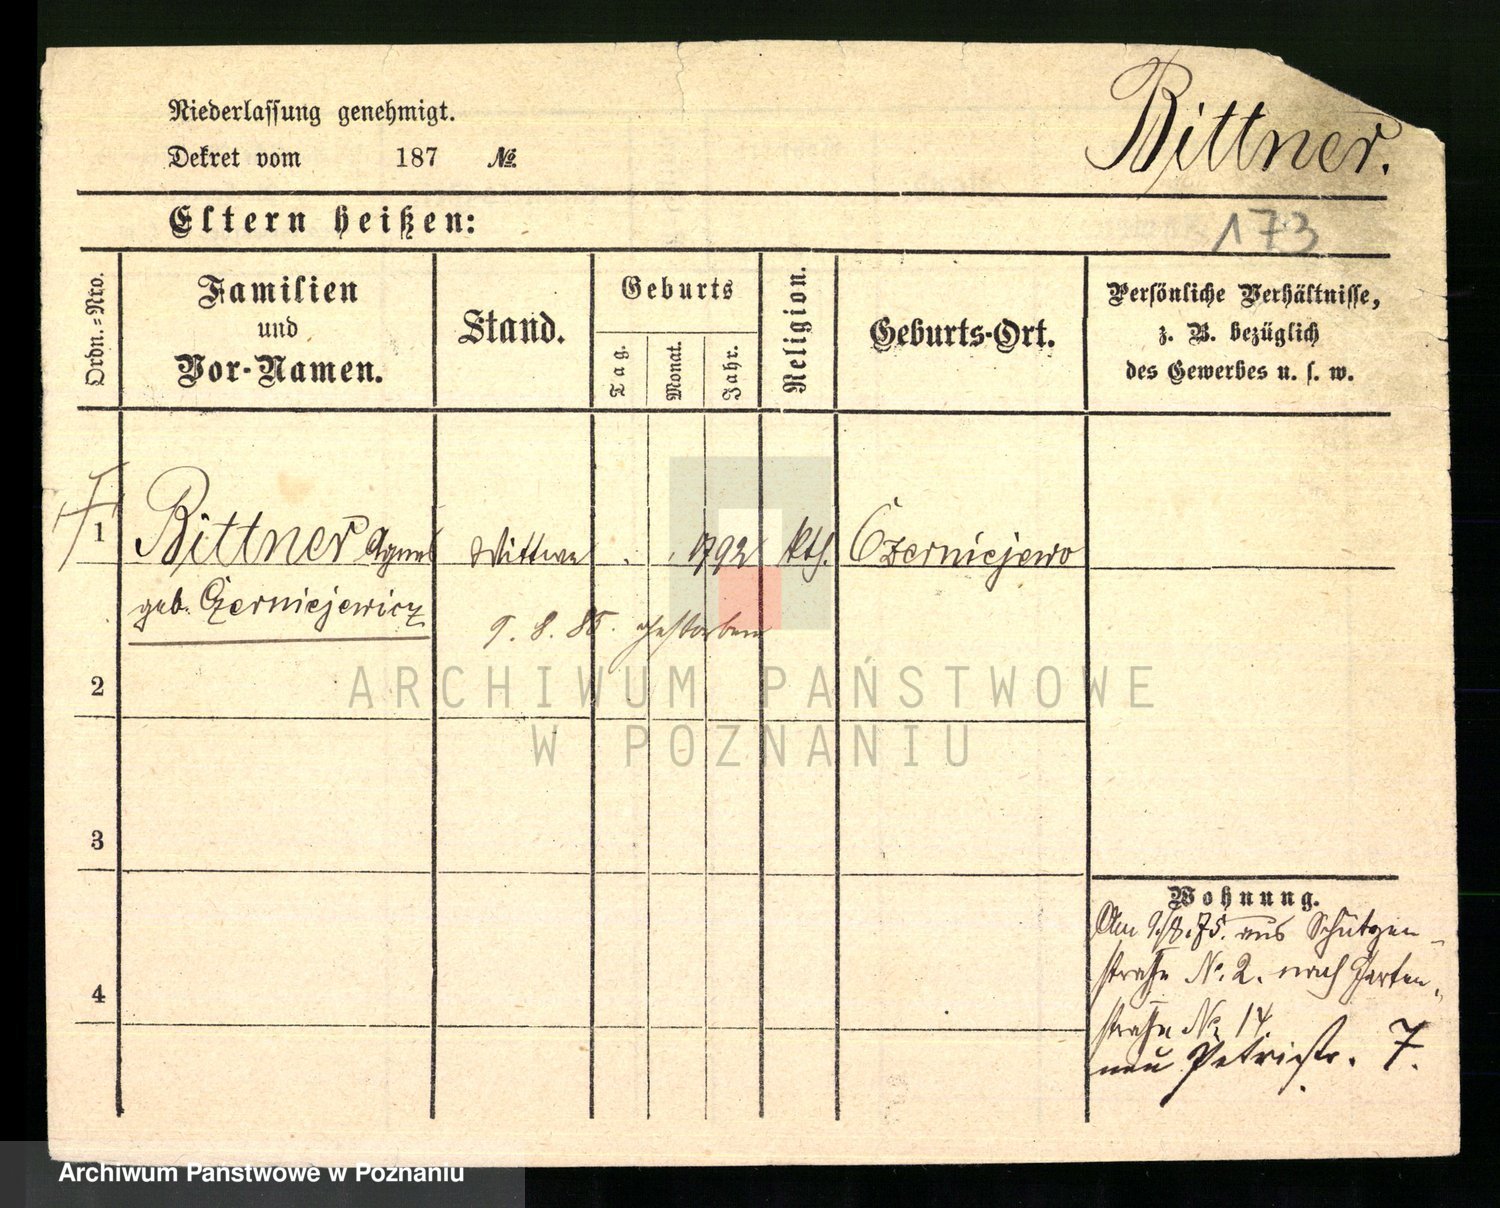 Niederlassung genehmigt.
Dekret vom 187 №
Bittner.
173
Eltern heißen:
Ordn.-Nro.
Familien
und
Vor-Namen.
Stand.
Geburts
Tag.
Monat.
Jahr.
Religion.
Geburts-Ort.
Persönliche Verhältnisse,
z. B. bezüglich
des Gewerbes u. s. w.
1 Bittner Agnes Wittwe 1792 kth. Czerniejewo
geb. Czerniejewicz
9. 8. 85. gestorben
2
ARCHIWUM PAŃSTWOWE
W POZNANIU
3
4
Wohnung.
Am 9/8.75. aus Schützen-
straße No. 2. nach Garten-
straße No 14.
neu Petristr. 7.
Archiwum Państwowe w Poznaniu